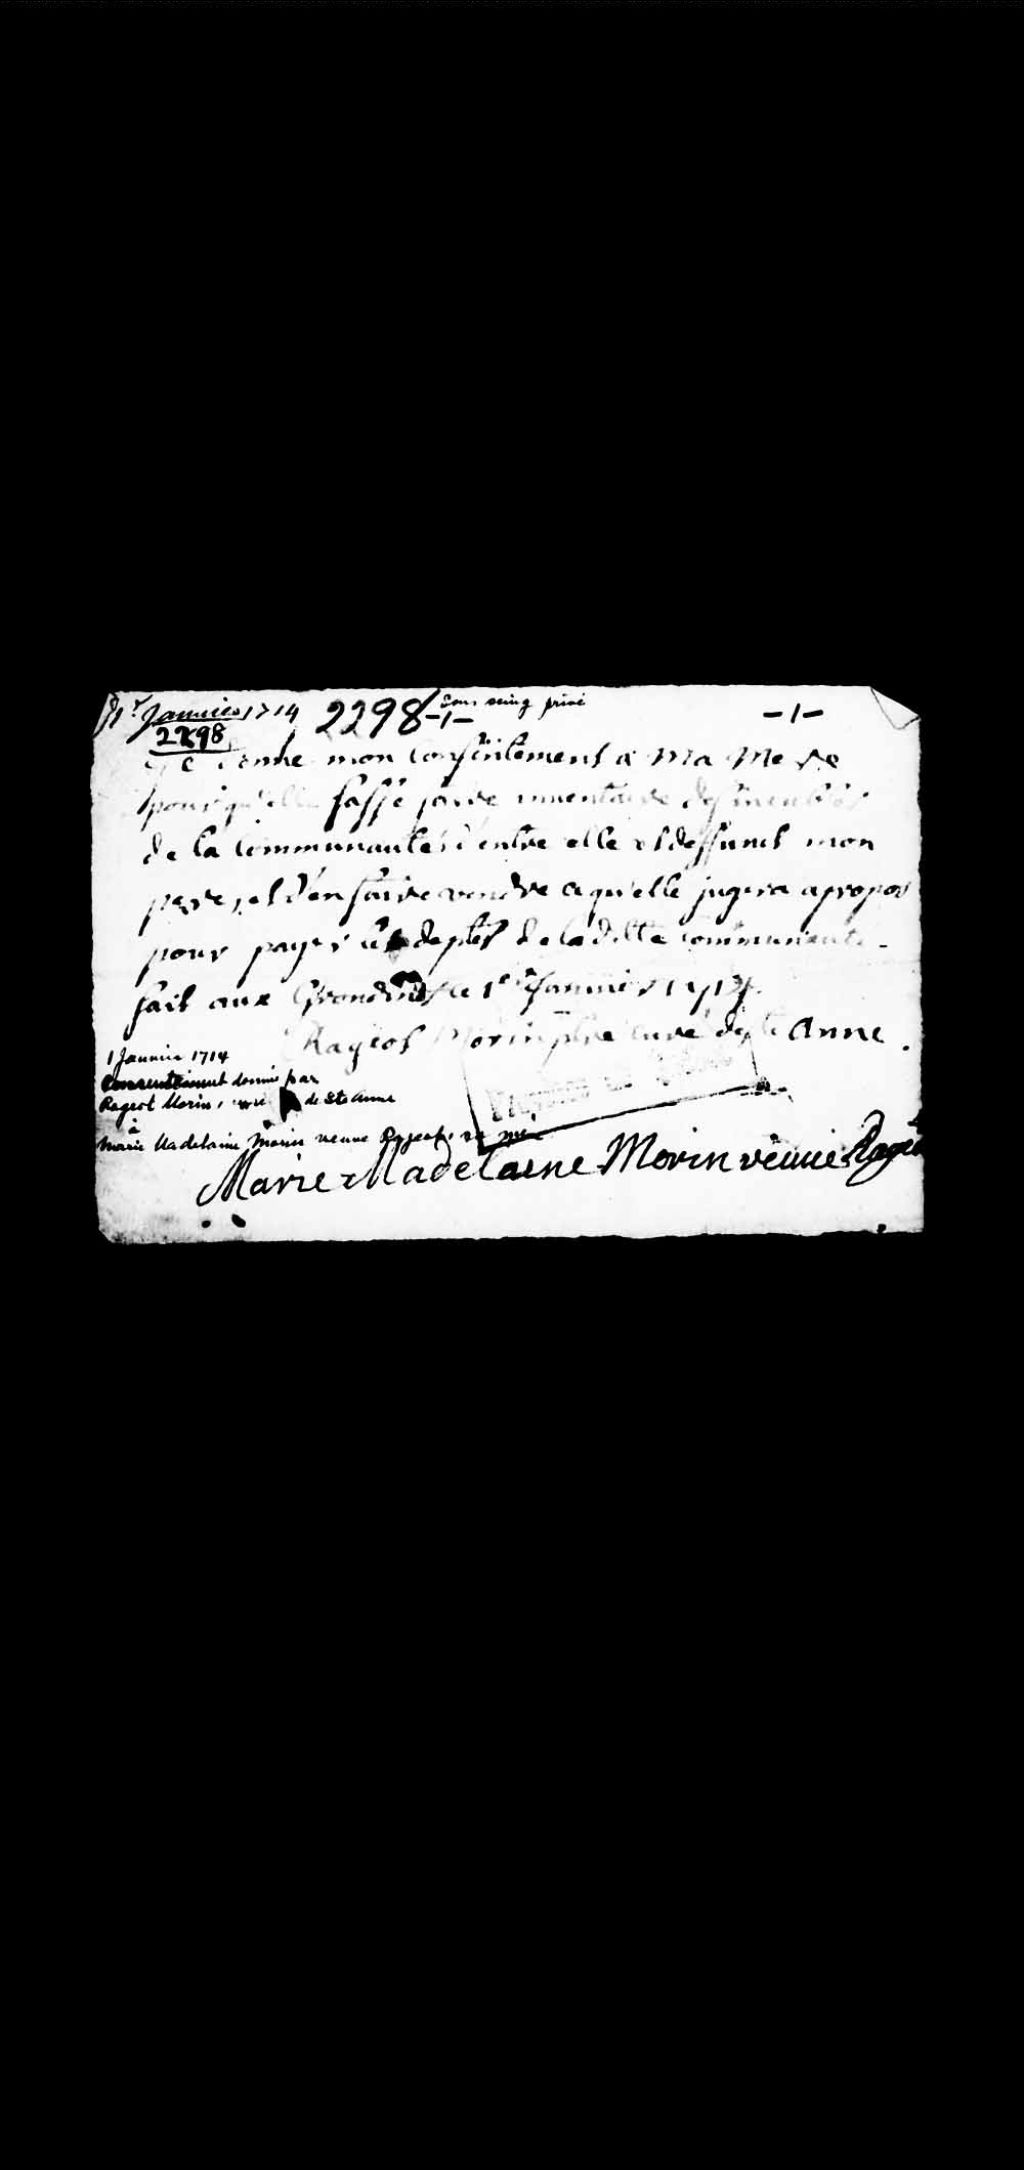 1r Januier 1714 2298 -1- Sous seing privé -1-
2298
Je donne mon consentement a Ma Mere
pour qu'elle fasse faire inuentaire des meubles
de la Communauté d'entre elle et deffunct mon
pere, et d'en faire vendre ce qu'elle jugera apropos
pour payer les deptes de la ditte communauté
fait aux Grondines le 1er Januier 1714
Rageot Morin ptre curé de Ste Anne.
1 Januier 1714
Consentement donné par
Rageot Morin, curé de Ste Anne
à
Marie Madelaine Morin veuue Rageot, sa mère
Marie Madelaine Morin veuue Rageot